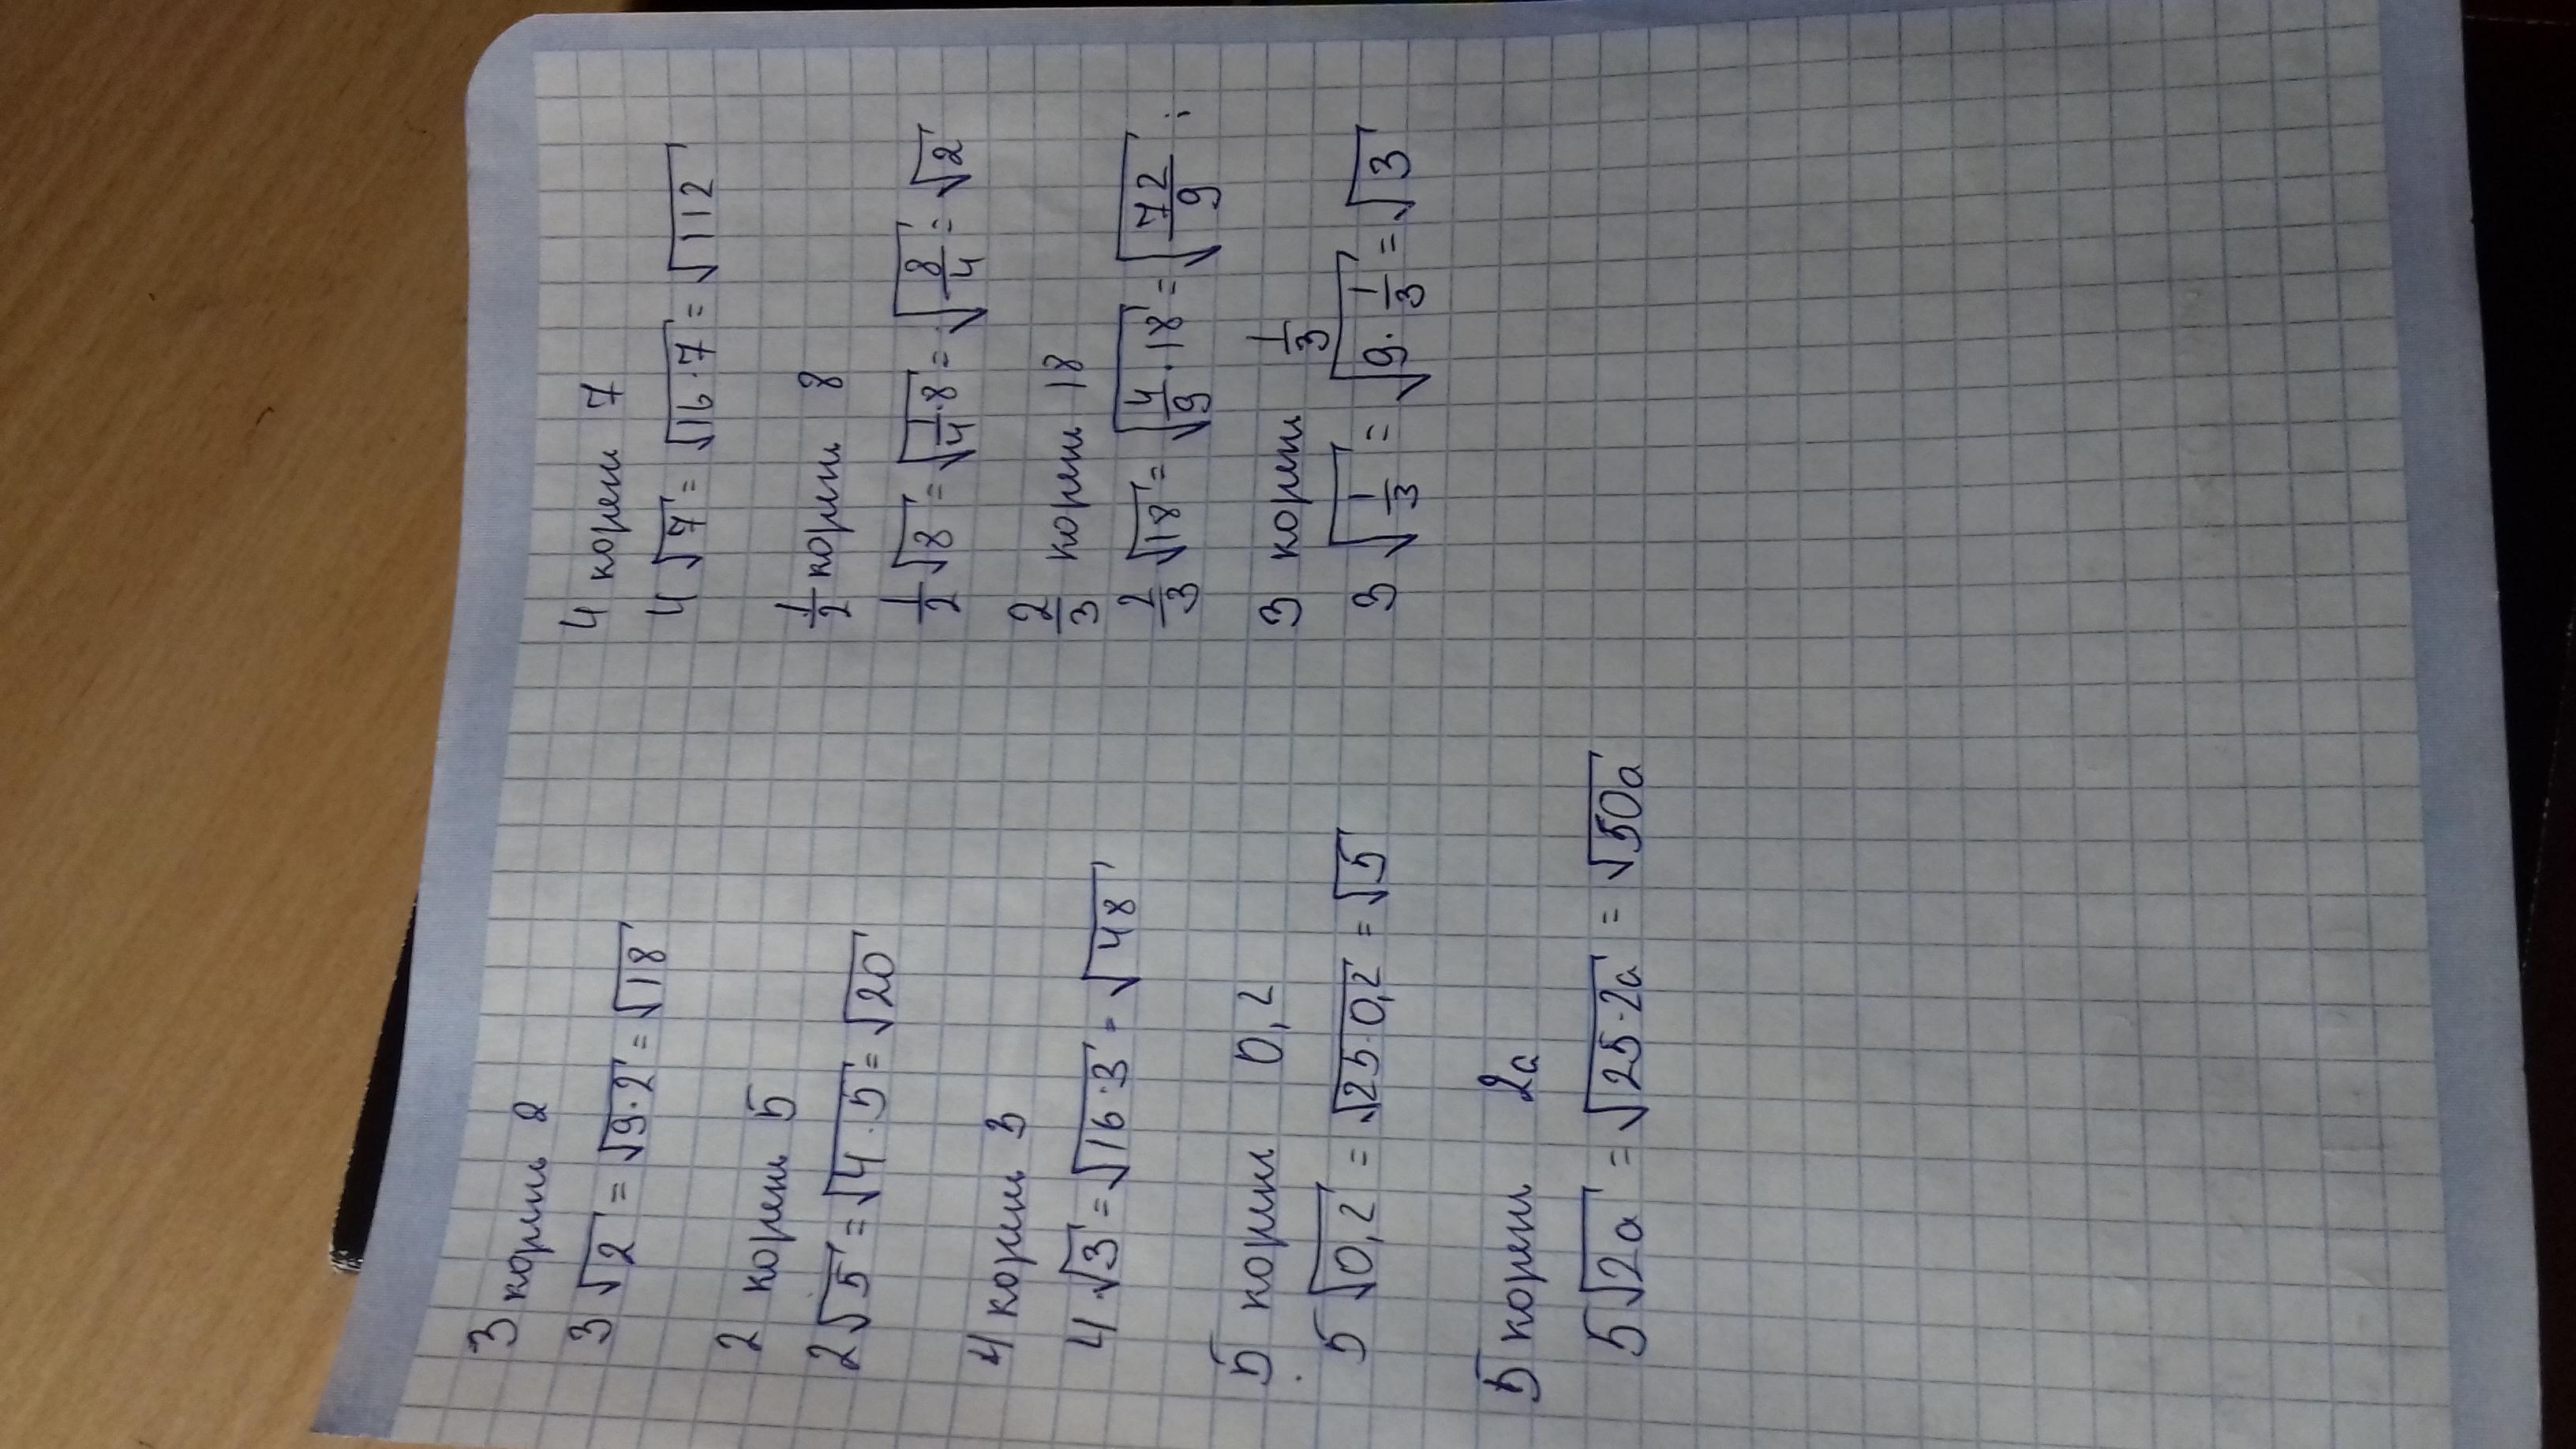 3 корень 2
3√2 = √9·2 = √18
2 корень 5
2√5 = √4·5 = √20
4 корень 3
4·√3 = √16·3 = √48
5 корень 0,2
5√0,2 = √25·0,2 = √5
5 корень 2a
5√2a = √25·2a = √50a
4 корень 7
4√7 = √16·7 = √112
1/2 корень 8
1/2√8 = √1/4·8 = √8/4 = √2
2/3 корень 18
2/3√18 = √4/9·18 = √72/9 ;
3 корень 1/3
3√1/3 = √9·1/3 = √3